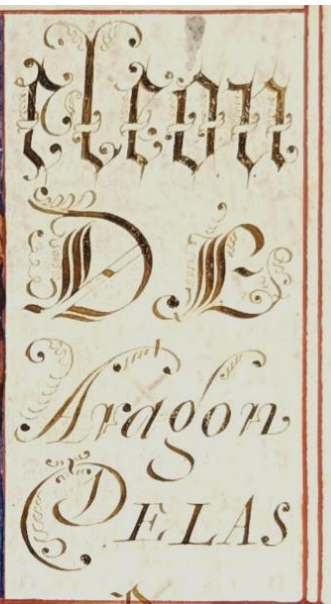 eleon
DE
Aragon
DELAS